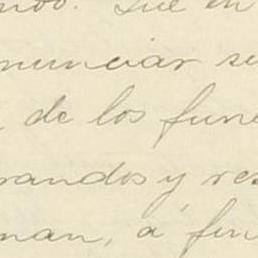 Que en
nunciar su
de los fune
randos y res
nan, á fin